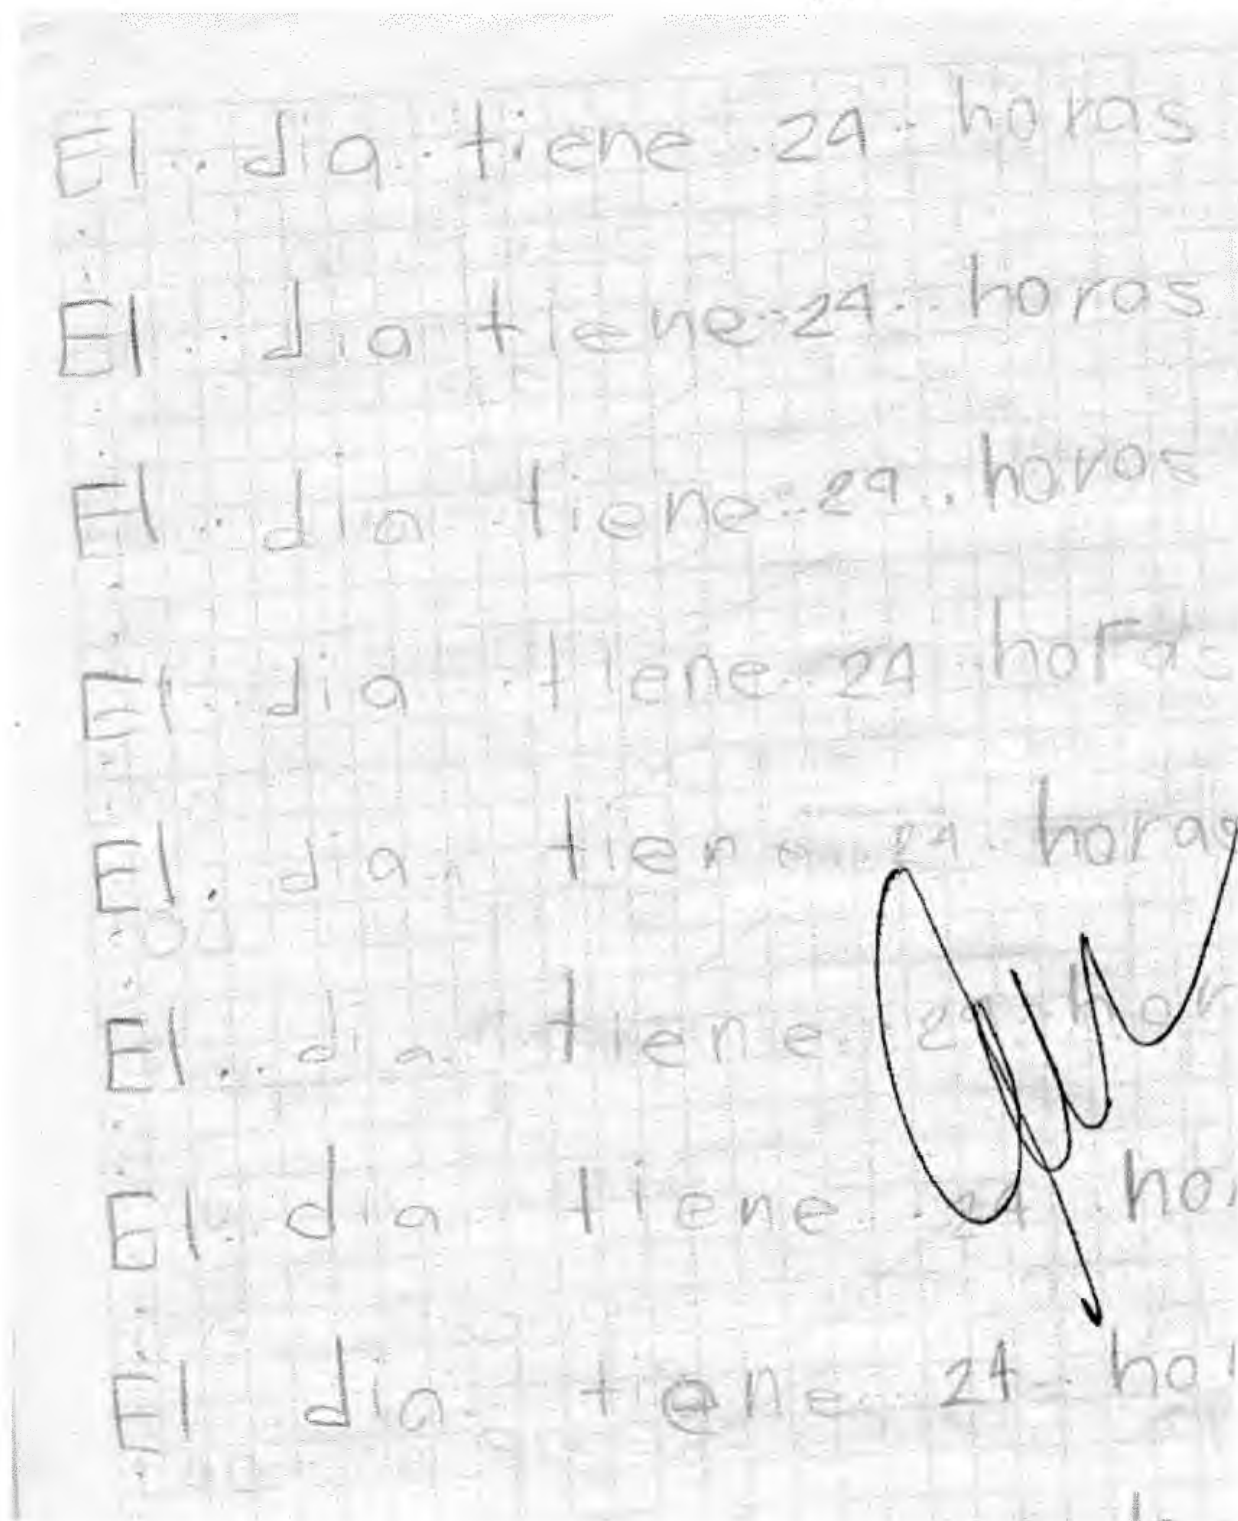 El dia tiene 24 horas
El dia tiene 24 horas
El dia tiene 24 horas
El dia tiene 24 horas
El dia tiene 24 horas
El dia tiene 24 hor
El dia tiene 24 hor
El dia tiene 24 hor